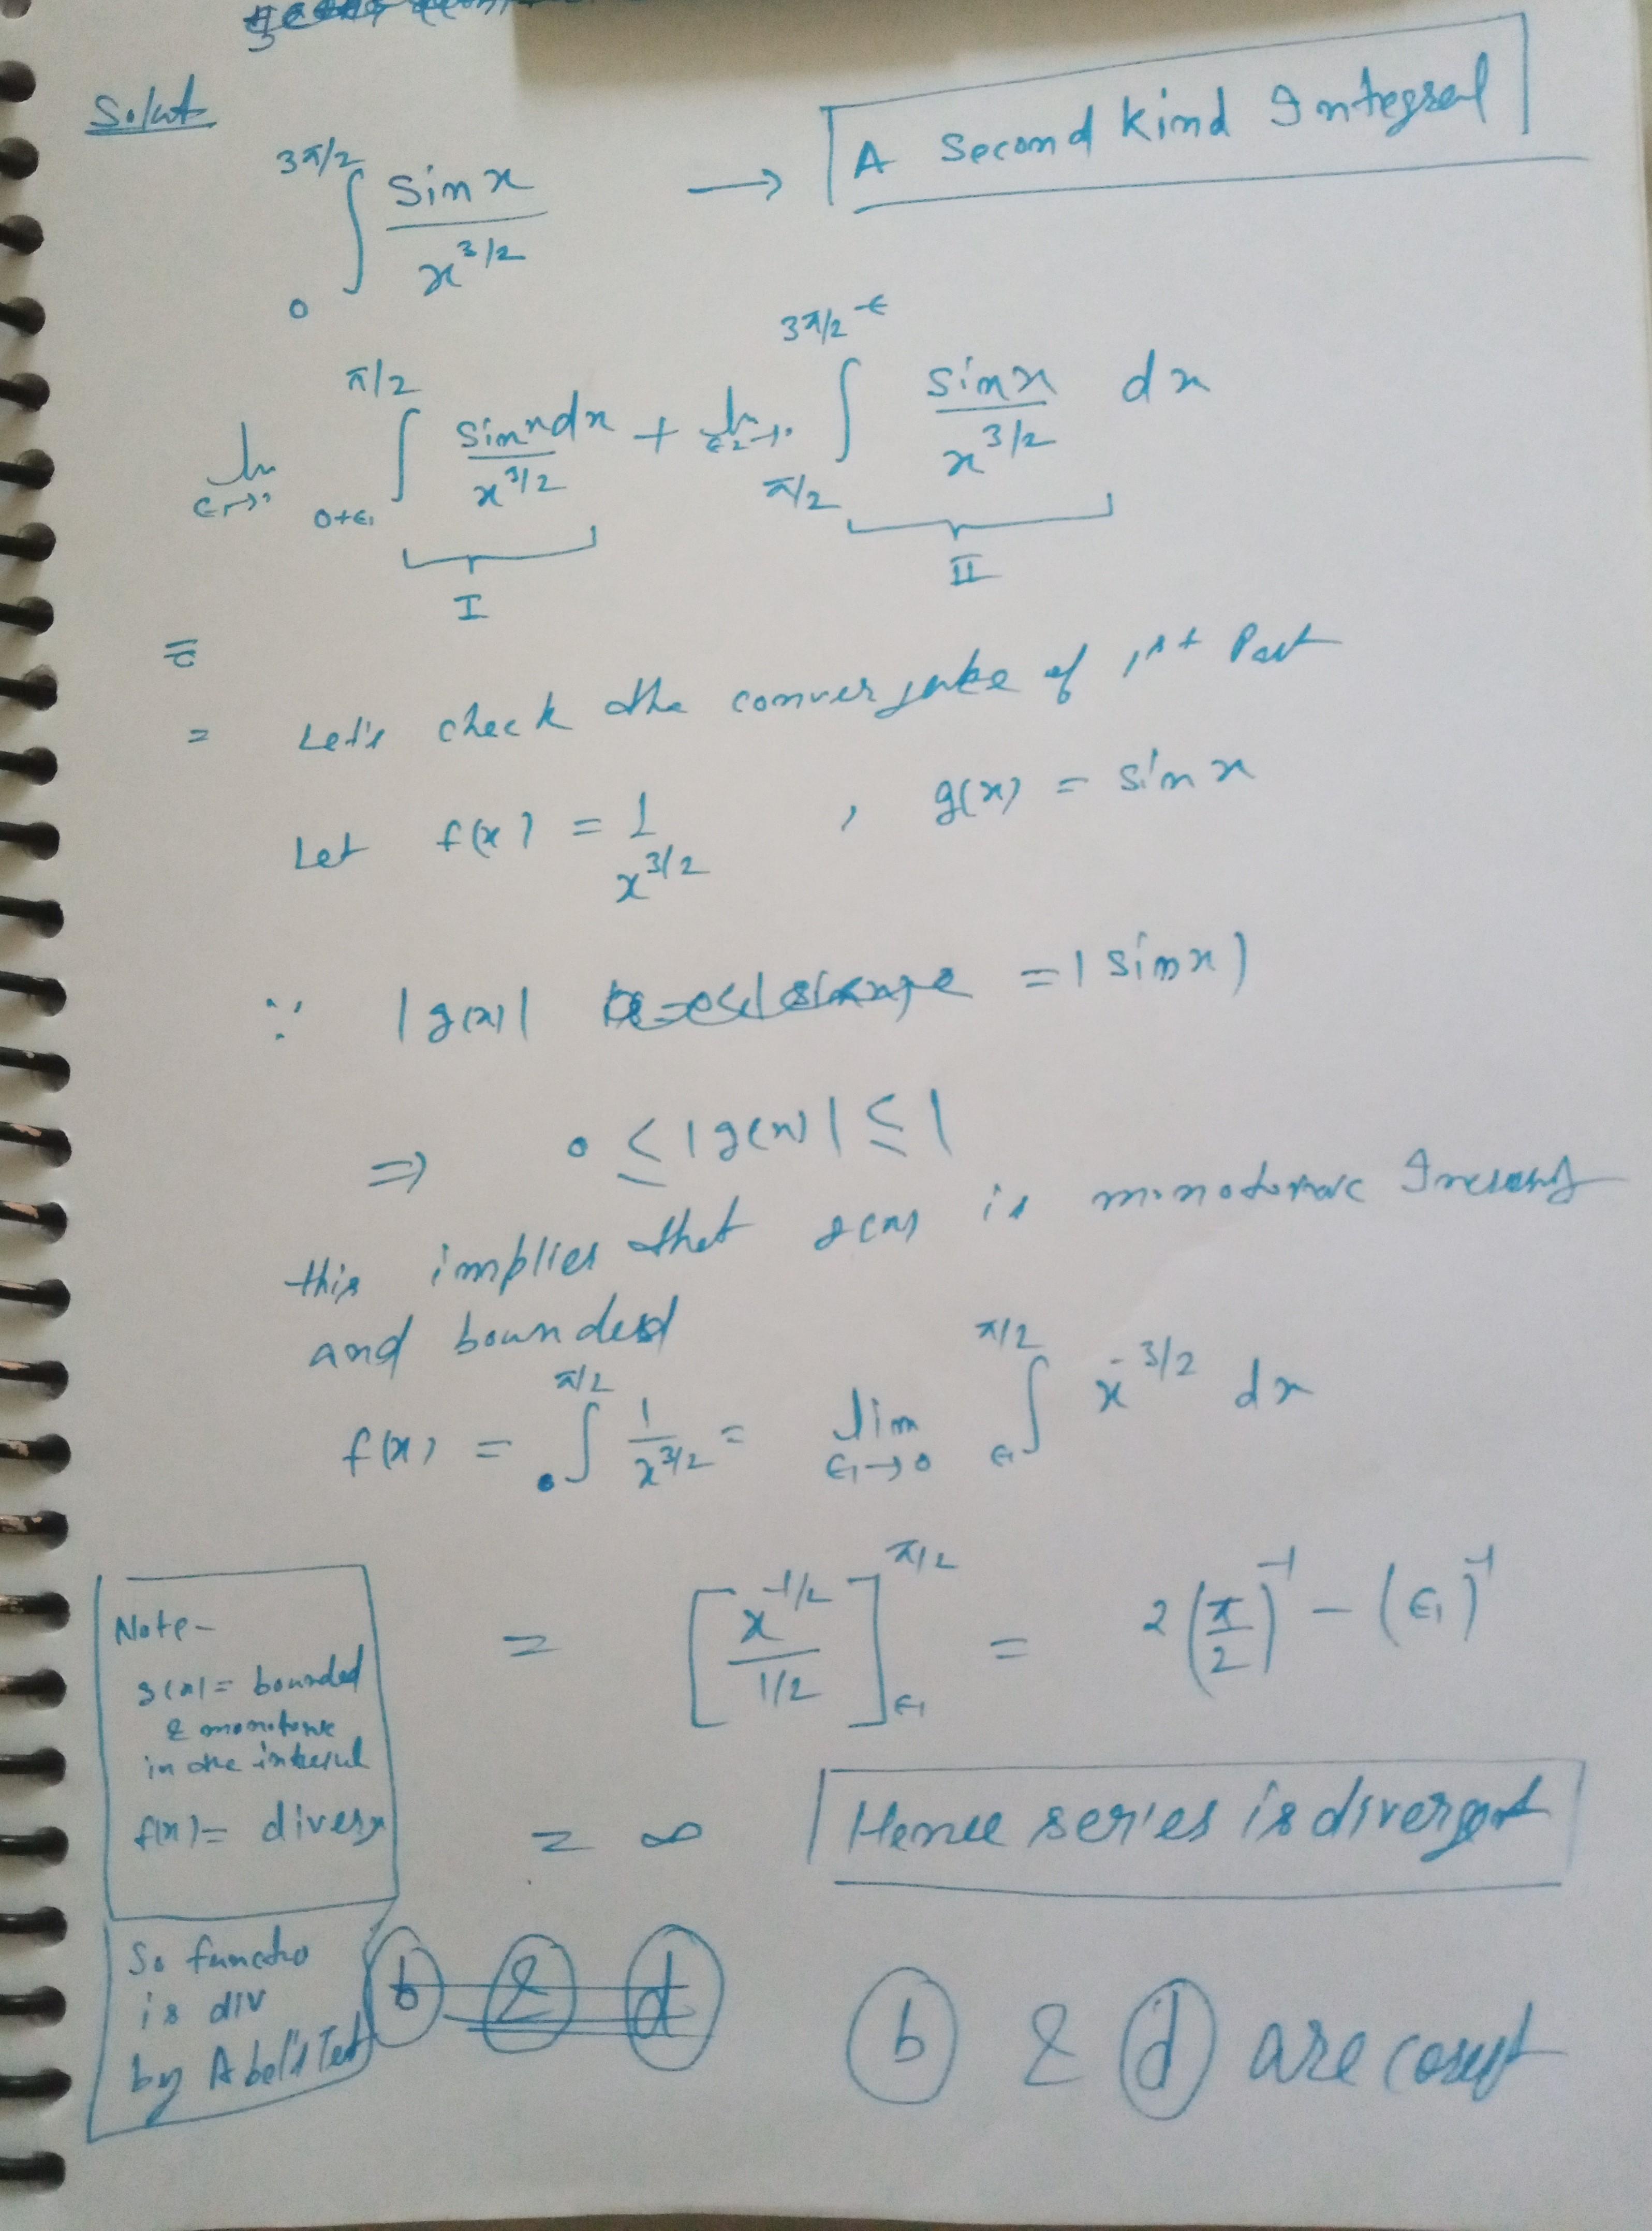 Solut
3π/2 ∫ 0 sin x / x^3/2 → A Second Kind Integral
lim ε₁→0 ∫ 0+ε₁ π/2 sin x dx / x^3/2 + lim ε₂→0 ∫ π/2 3π/2 -ε sin x / x^3/2 dx
I II
=
= Let's check the convergence of 1st Part
Let f(x) = 1 / x^3/2 , g(x) = sin x
∵ |g(x)| = |sin x|
⇒ 0 ≤ |g(x)| ≤ 1
this implies that g(x) is monotonic
and bounded
f(x) = ∫ 0 π/2 1 / x^3/2 = lim ε₁→0 ∫ ε₁ π/2 x^-3/2 dx
= [ x^-1/2 / 1/2 ] ε₁ π/2 = 2 (π/2)^-1 - (ε₁)^-1
= ∞ Hence series is divergent
Note-
g(x) = bounded
& monotone
in the
f(x) = diverg
So functio
is div
by Abel's Test
b & d
b & d are